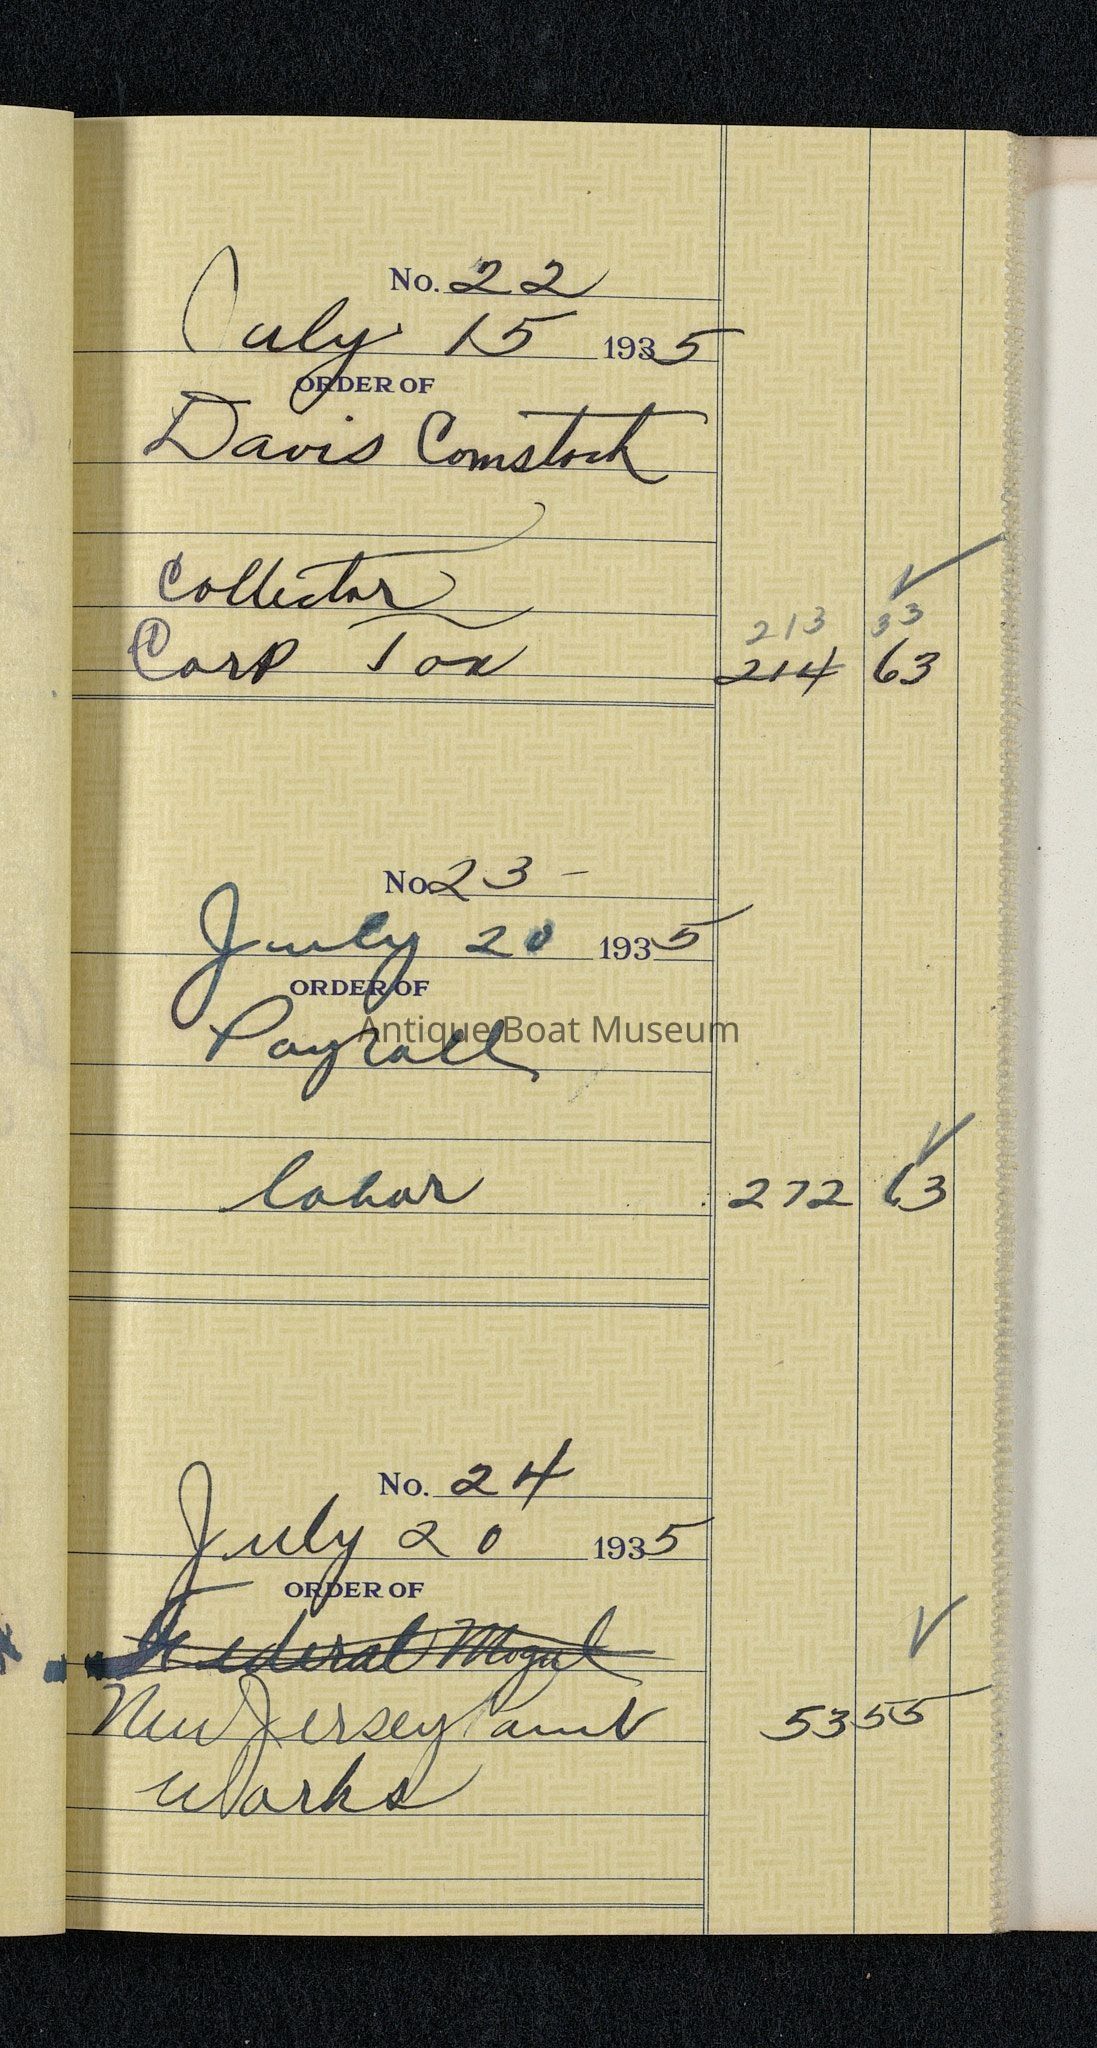 No. 22
July 15 1935
ORDER OF
Davis Comstock
Collector
213 33
Corp Tax 214 63
No. 23 -
July 20 1935
ORDER OF
Payroll
Antique Boat Museum
labor 272 63
No. 24
July 20 1935
ORDER OF
Federal Mogul
New Jersey Paint 53 55
Works